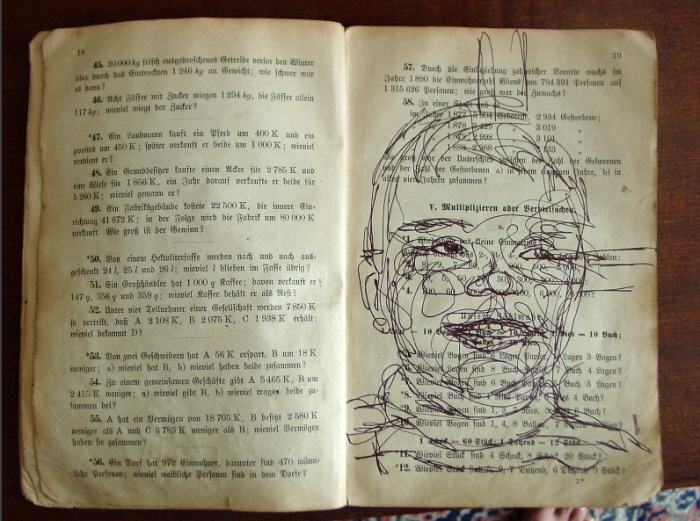 18
45. 30000 kg frisch ausgedroschenes Getreide verlor den Winter
über durch das Eintrocknen 1246 kg an Gewicht; wie schwer war
es dann?
46. Acht Fässer mit Zucker wiegen 1234 kg, die Fässer allein
117 kg; wieviel wiegt der Zucker?
*47. Ein Landmann kauft ein Pferd um 400 K und ein
zweites um 450 K; später verkauft er beide um 1000 K; wieviel
verdient er?
48. Ein Grundbesitzer kaufte einen Acker für 2785 K und
eine Wiese für 1856 K, ein Jahr darauf verkaufte er beide für
5260 K; wieviel gewann er?
49. Ein Fabriksgebäude kostete 22500 K, die innere Ein-
richtung 41672 K; in der Folge wird die Fabrik um 80000 K
verkauft. Wie groß ist der Gewinn?
*50. Von einem Hektoliterfasse werden nach und nach aus-
geschenkt 24 l, 25 l und 26 l; wieviel l blieben im Fasse übrig?
51. Ein Großhändler hat 1000 g Kaffee; davon verkauft er
147 g, 356 g und 359 g; wieviel Kaffee behält er als Rest?
52. Unter vier Teilnehmer einer Gesellschaft werden 7850 K
so verteilt, daß A 2108 K, B 2075 K, C 1938 K erhält;
wieviel bekommt D?
*53. Von zwei Geschwistern hat A 56 K erspart, B um 18 K
weniger; a) wieviel hat B, b) wieviel haben beide zusammen?
54. Zu einem gemeinsamen Geschäfte gibt A 5465 K, B um
2415 K weniger; a) wieviel gibt B, b) wieviel tragen beide zu-
sammen bei?
55. A hat ein Vermögen von 18705 K, B besitzt 2580 K
weniger als A und C 3783 K weniger als B; wieviel Vermögen
haben sie zusammen?
*56. Ein Dorf hat 972 Einwohner, darunter sind 470 männ-
liche Personen; wieviel weibliche Personen sind in dem Dorfe?
19
57. Durch die Einbeziehung zahlreicher Vororte wuchs im
Jahre 1890 die Einwohnerzahl Wiens von 794391 Personen auf
1315626 Personen; wie groß war der Zuwachs?
58. In einer Stadt gab es
im Jahre 1877 3004 Geborene, 2934 Gestorbene;
1878 3427 3019
1879 2998 3191
2988
wie groß war der Unterschied zwischen der Zahl der Geborenen
und der Zahl der Gestorbenen a) in jedem einzelnen Jahre, b) in
allen vier Jahren zusammen?
V. Multiplizieren oder Vervielfachen.
a.
1. das kleine Einmaleins
= 10 Buch;
Wieviel Bogen sind 6 Lagen Papier, Lagen 3 Bogen?
Wieviel Bogen sind 8 Buch 3 Lagen?
Wieviel Bogen sind Buch 3 Lagen?
*8. Wieviel Buch sind 4 Buch?
Wieviel Bogen sind 1, 3, Buch?
Wieviel Bogen sind 1, 4, 8
1 Schock = 60 Stück; 1 Dutzend = 12 Stück.
*11. Wieviel Stück sind 4 Schock, 8 Schock 20 Stück?
*12. Wieviel Stück sind 7 Dutzend, 6 Dutzend 9 Stück?
2*